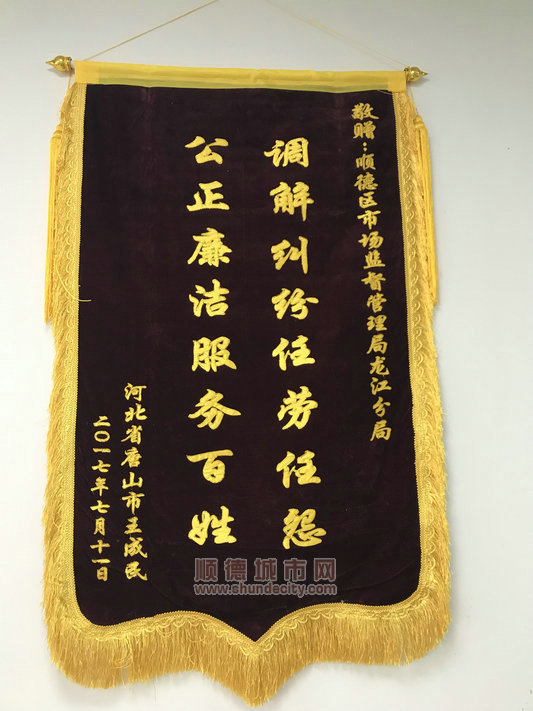 敬赠：顺德区市场监督管理局龙江分局
调解纠纷任劳任怨
公正廉洁服务百姓
河北省唐山市王成民
二〇一七年七月十一日
顺德城市网
www.chundecity.com